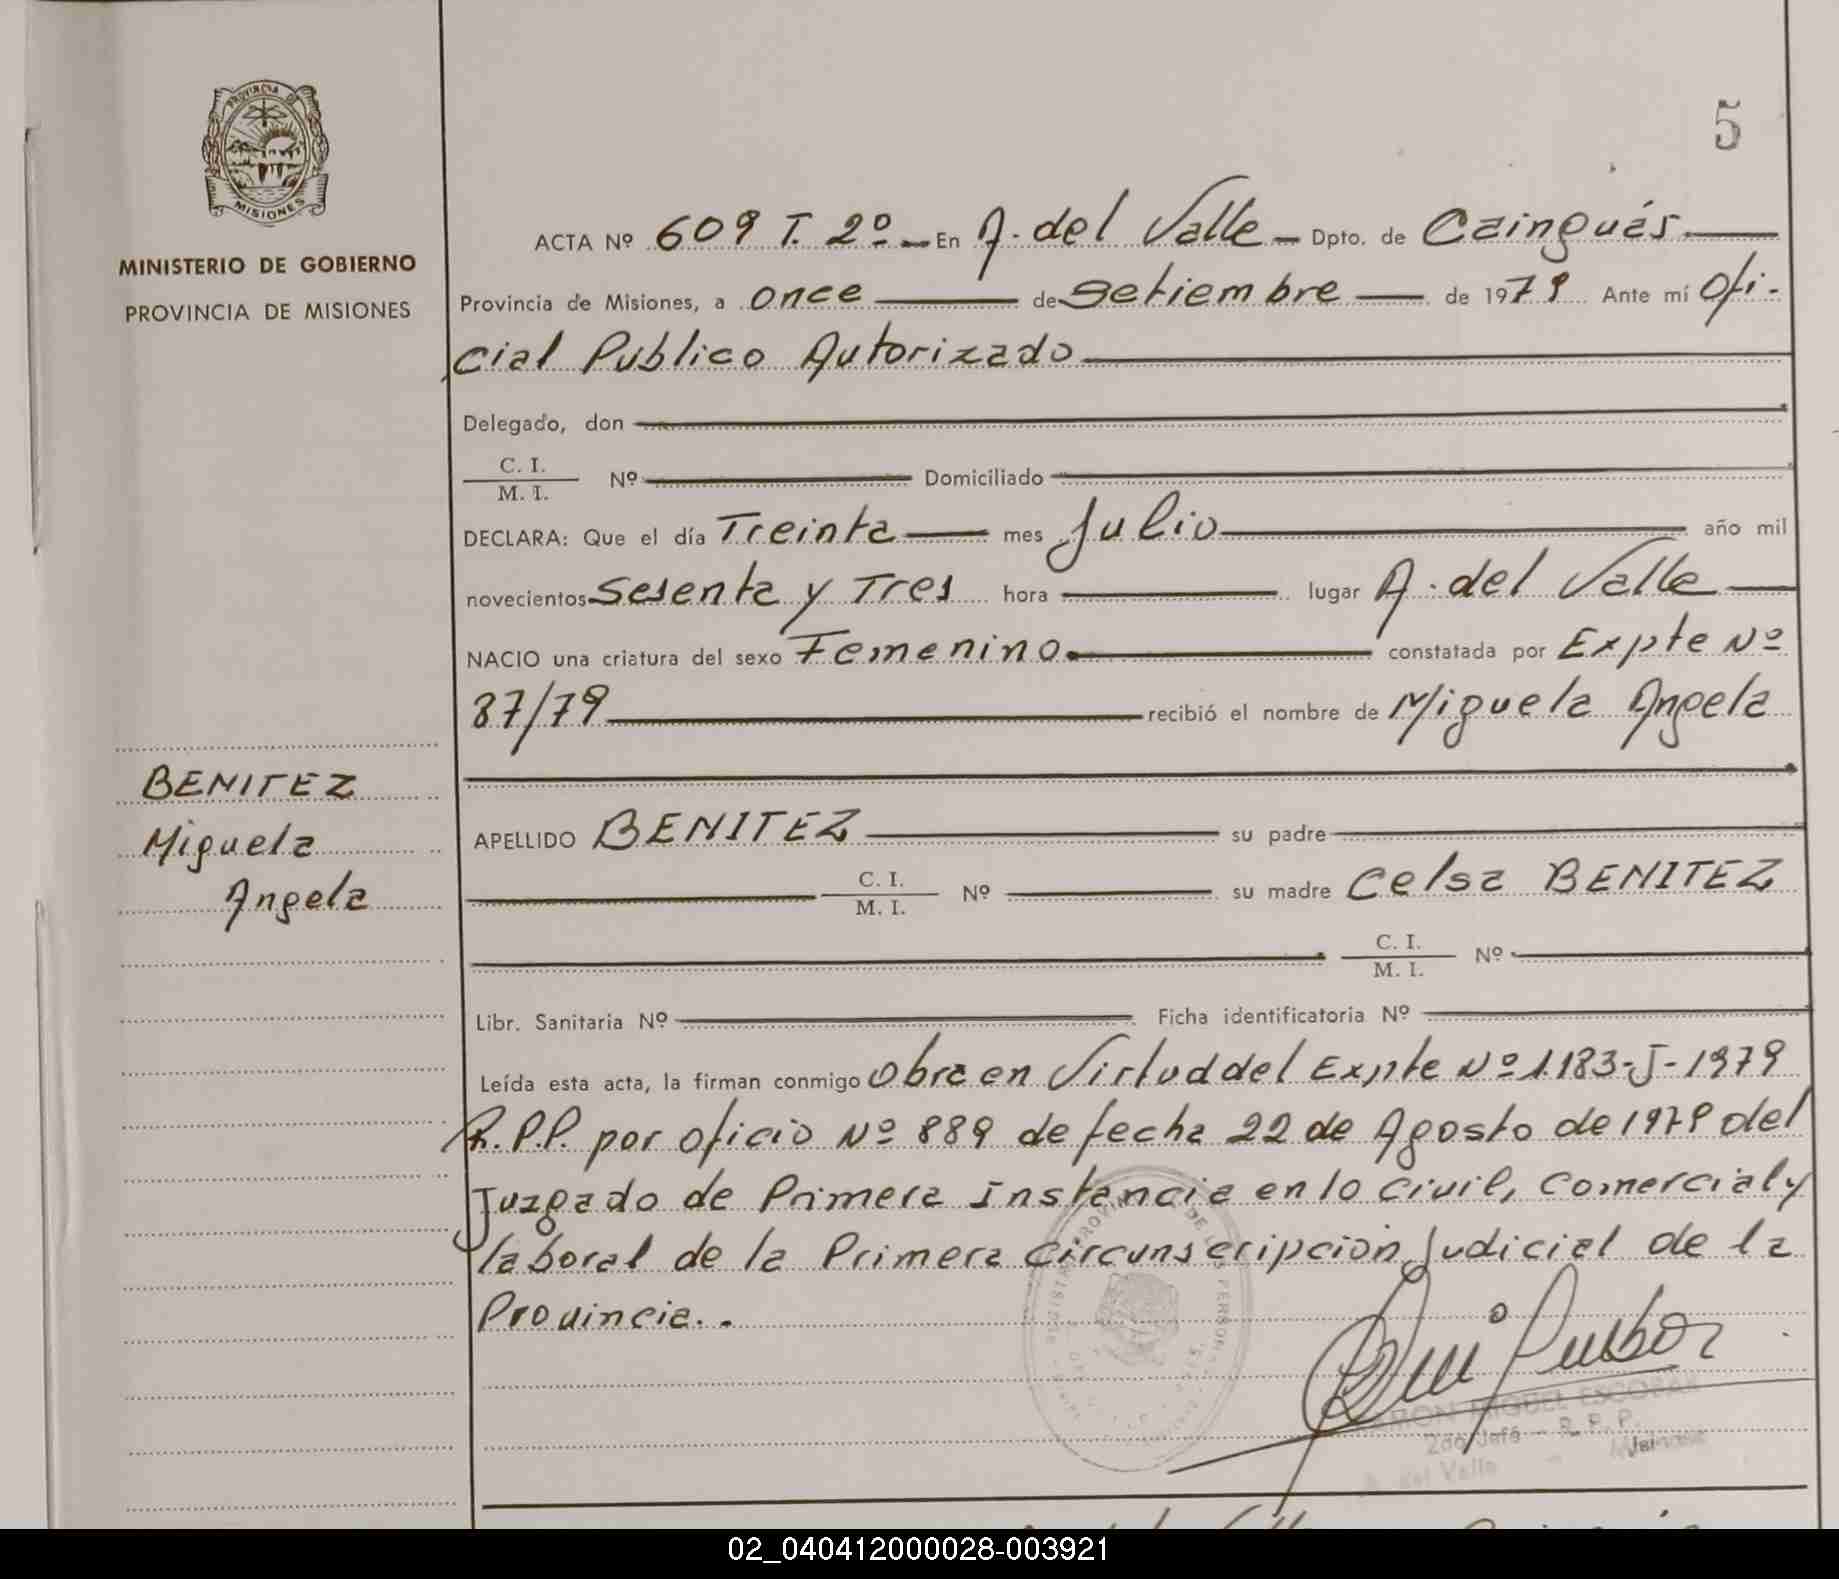 5
PROVINCIA DE
MISIONES
MINISTERIO DE GOBIERNO
PROVINCIA DE MISIONES
ACTA Nº 609 T. 2º - En A. del Valle - Dpto. de Cainguás
Provincia de Misiones, a once de Setiembre de 1979 Ante mí Ofi-
cial Público Autorizado
Delegado, don
C. I.
M. I. Nº Domiciliado
DECLARA: Que el día Treinta mes Julio año mil
novecientos Sesenta y Tres hora lugar A. del Valle
NACIO una criatura del sexo Femenino constatada por Expte Nº
87/79 recibió el nombre de Miguela Angela
BENITEZ
Miguela
Angela
APELLIDO BENITEZ su padre
C. I.
M. I. Nº su madre Celsa BENITEZ
C. I.
M. I. Nº
Libr. Sanitaria Nº Ficha identificatoria Nº
Leída esta acta, la firman conmigo Obra en Virtud del Expte Nº 1.183-J-1979
R.P.P. por oficio Nº 889 de fecha 22 de Agosto de 1979 del
Juzgado de Primera Instancia en lo Civil, Comercial y
laboral de la Primera Circunscripción Judicial de la
Provincia..
MIGUEL ESCOBAR
2do Jefe - R. P. P.
del Valle
02_040412000028-003921